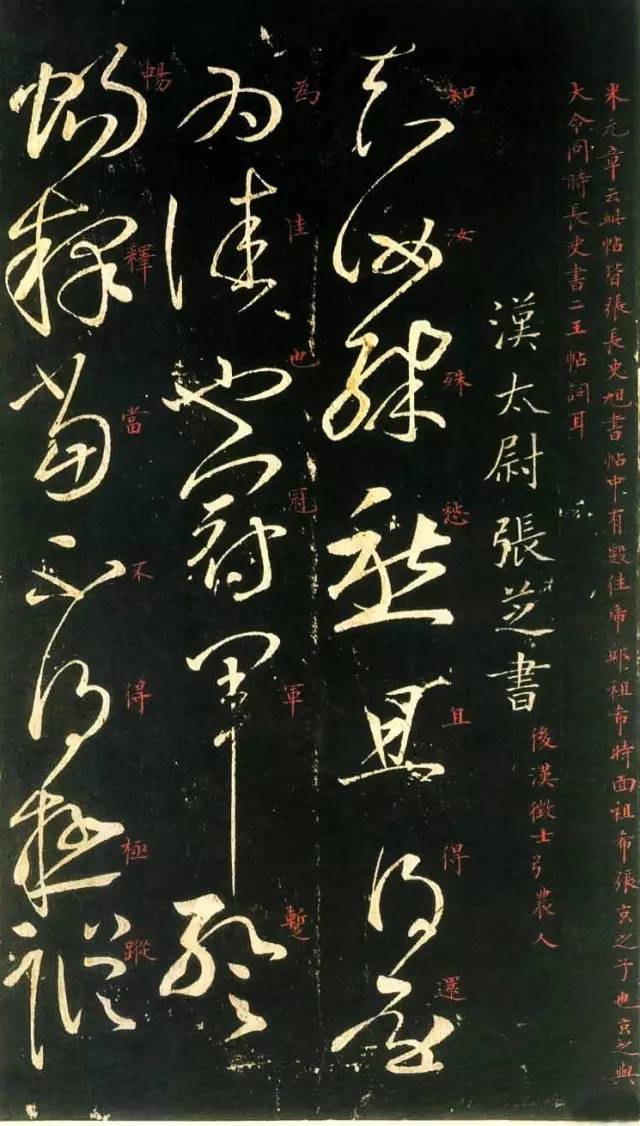 米元章云此帖皆張長史旭書帖中有毅佳帝邱祖希時面祖希張玄之子也玄之與
大令同時長史書二王帖詞耳
漢太尉張芝書
後漢徵士弘農人
知汝殊愁且得還
知汝殊愁且得還
為佳也冠軍暫
為佳也冠軍暫
暢釋當不得極蹤
暢釋當不得極蹤